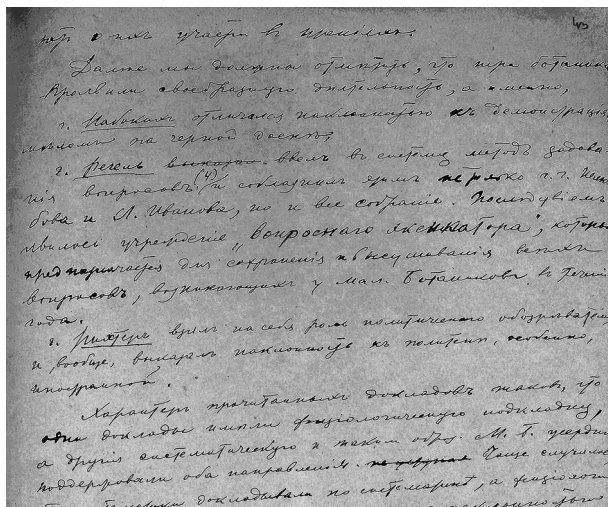 40
о ихъ участи в пренiяхъ.
Далѣе мы должны отмѣтить, что три ботаника
проявили своеобразную дѣятельность, а именно,
г. Набокихъ отличался наклонностью къ демонстрацiямъ
мѣломъ на черной доскѣ;
г. Регель ввелъ въ систему методъ задава-
нiя вопросовъ (4) и соблазнилъ этимъ не г.г.
бова и Л. Иванова, но и все собранiе. Послѣдствiемъ
явилось учрежденiе "Вопроснаго эксикатора", который
предназначается для сохраненiя и высушиванiя всѣхъ
вопросовъ, возникающихъ у мал. Ботаниковъ в теченiе
года.
г. Рихтеръ взялъ на себя роль политическаго обозрѣвателя
и, вообще, выказалъ наклонность къ политикѣ, особенно,
иностранной.
Характеръ прочитанныхъ докладовъ таковъ, что
одни доклады имѣли физiологическую подкладку,
а другiя систематическую и такимъ обр. М. Б. усердно
поддерживали оба направленiя. Чаще случалось
докладывали по систематикѣ, а физiологи